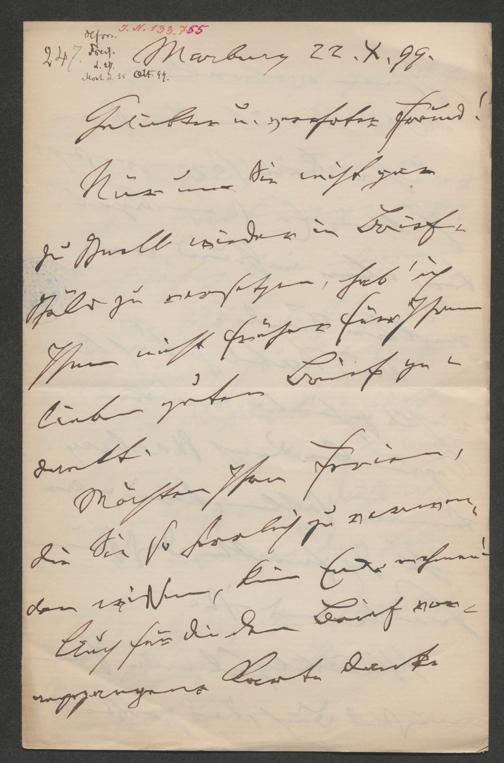 J. N. 133.755
247.
Marburg 22. X. 99.
Geliebter u. verehrter Freund!
Nur um Sie nicht gar
zu schnell wieder in Brief-
schuld zu versetzen, hab' ich
Ihnen nicht früher für Ihren
lieben guten Brief ge-
dankt.
Möchten Ihre Ferien,
die Sie so herrlich zu verwen-
den wissen, kein Ende nehmen!
Auch für die dem Brief vor-
angegangene Karte danke